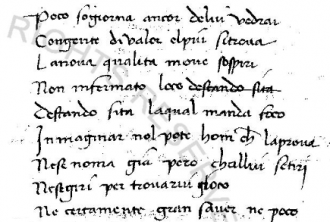 Poco sogiorna ancor delui vedrai
Congente di valor elpiu sitrova
Lanova qualita move sospiri
Non infermato loco destando sita
Destando sita laqual manda foco
Inmaginar nol pote hom ch laprova
Nesi mova gia pero challui si tiri
Nesigiri per trovarvi gioco
Ne certamente gran saver ne poco
RIGHTS RES